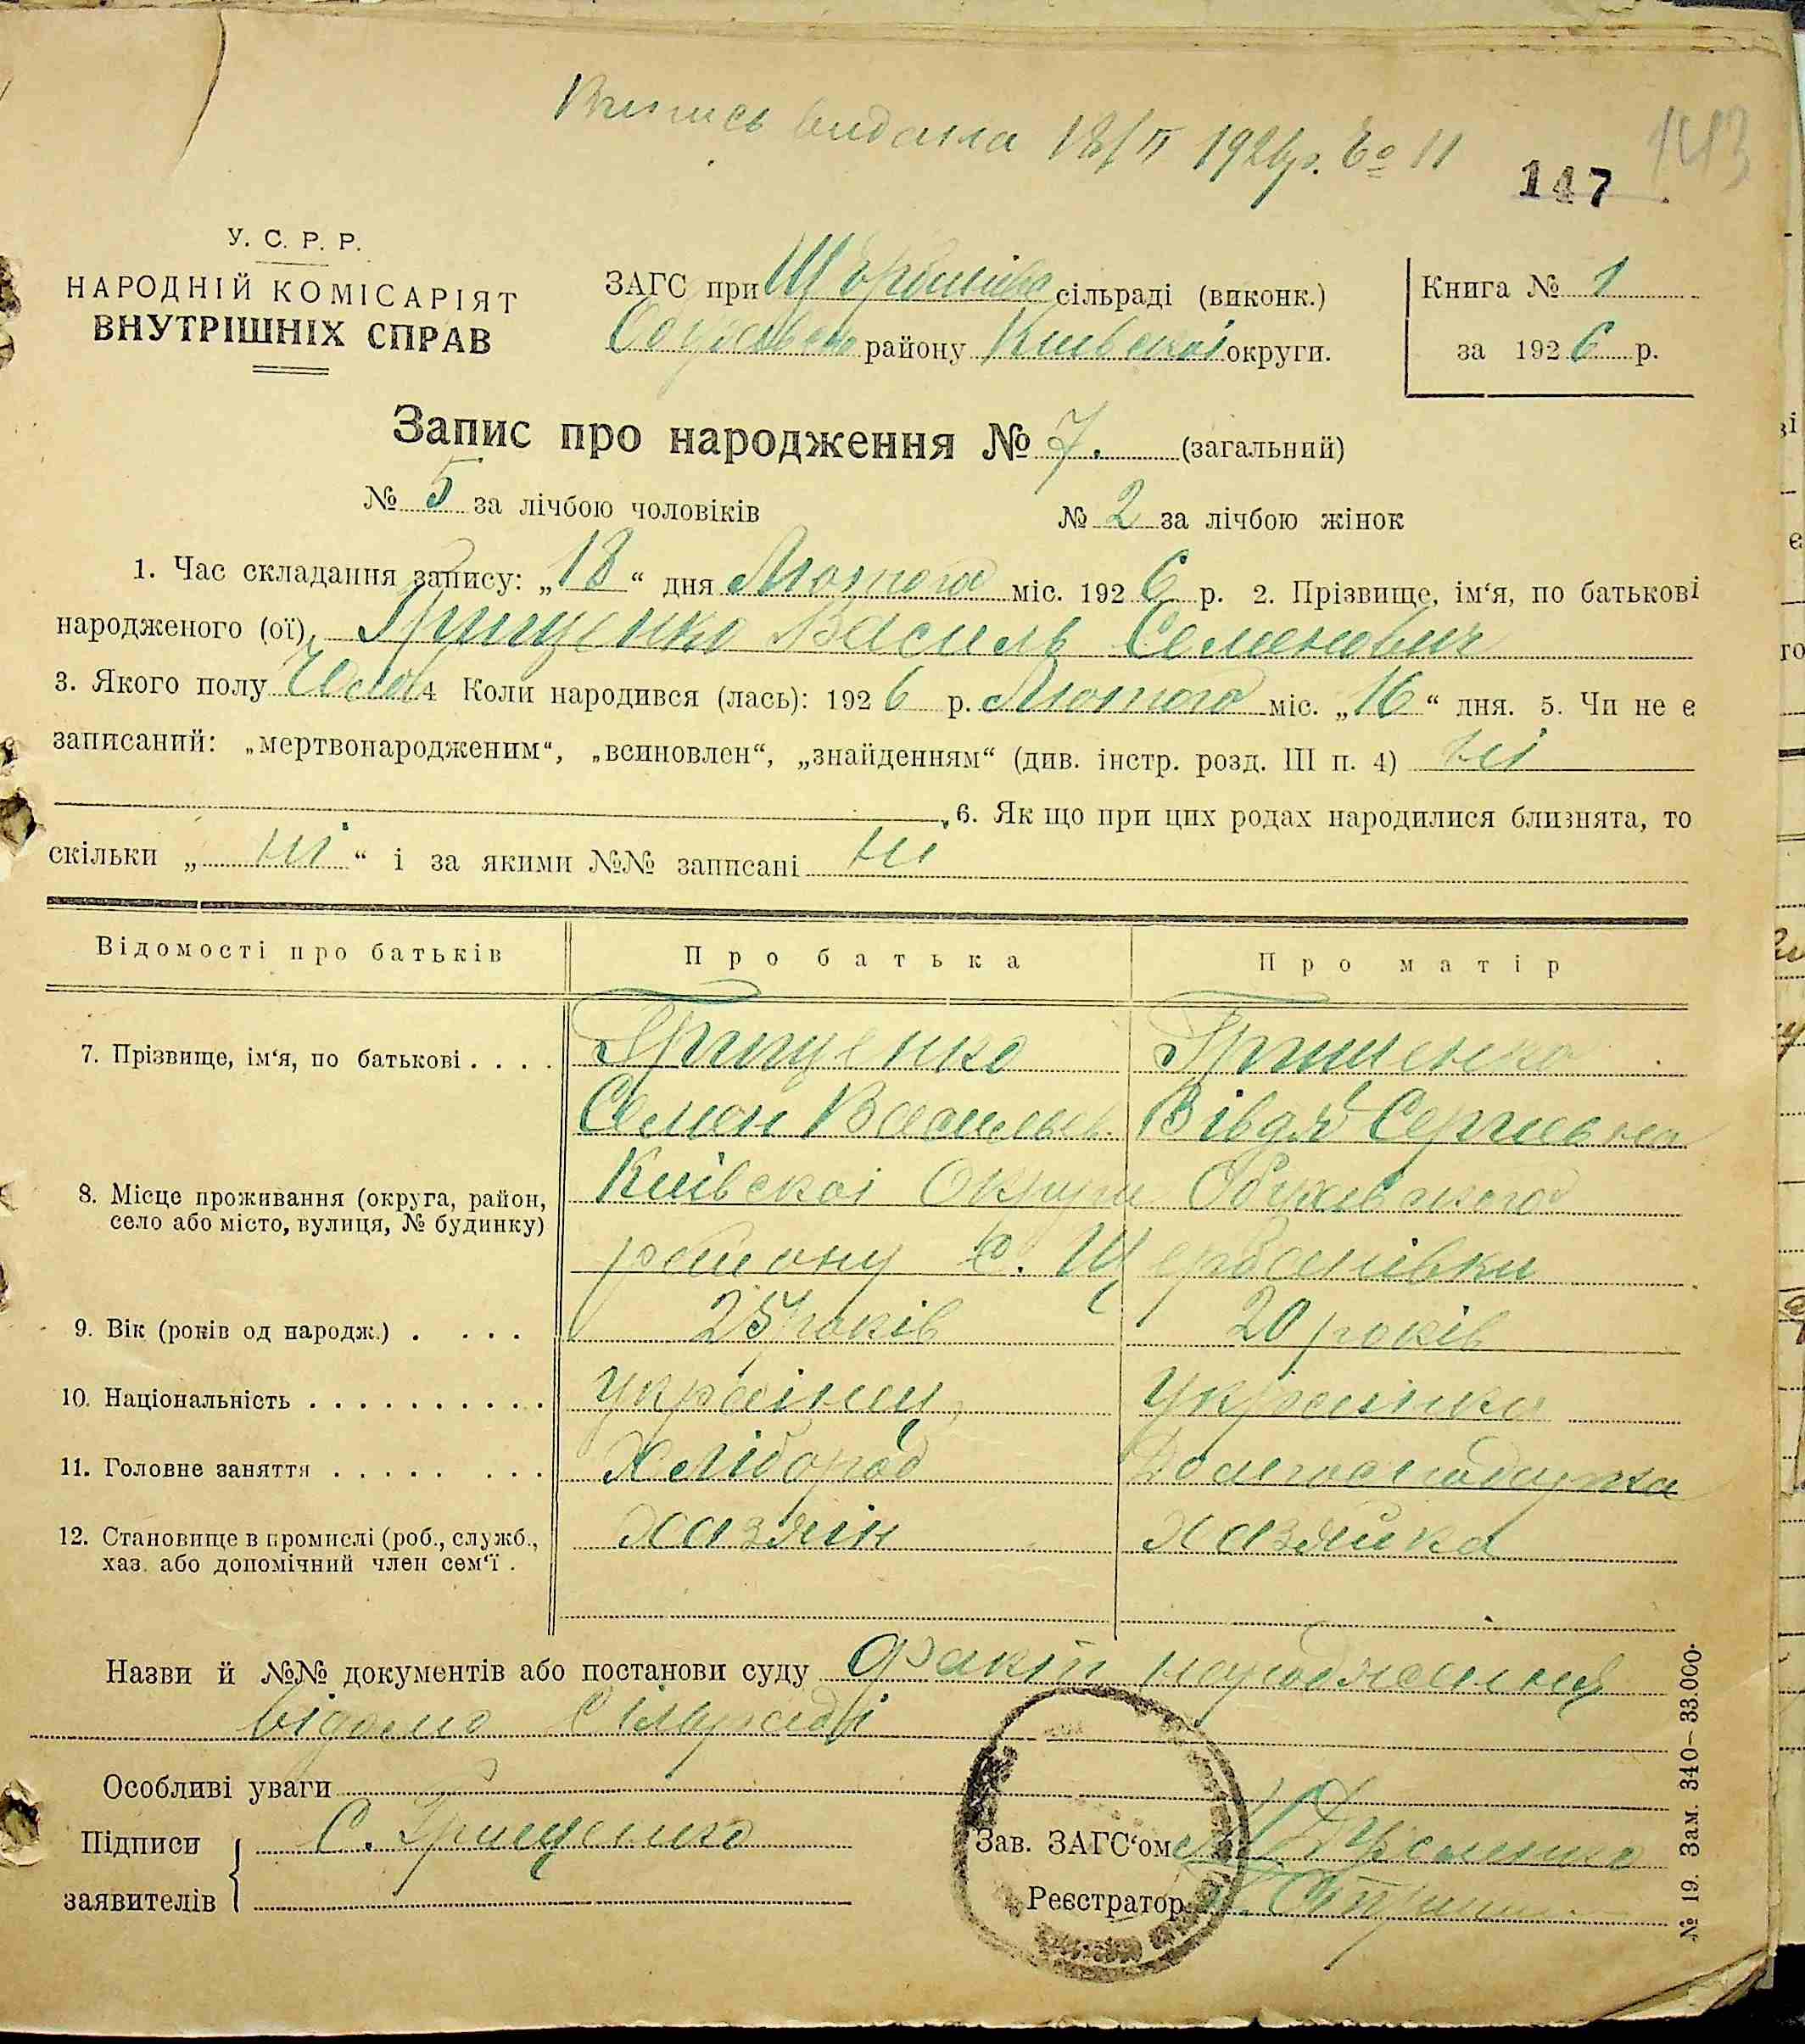 Випись видана 18/II 1926р. № 11
143
147
У. С. Р. Р.
НАРОДНІЙ КОМІСАРІЯТ
ВНУТРІШНІХ СПРАВ
ЗАГС при сільраді (виконк.)
району Київскоі округи.
Книга № 1
за 1926 р.
Запис про народження № 7. (загальний)
№ 5 за лічбою чоловіків № 2 за лічбою жінок
1. Час складання запису: „18“ дня Лютого міс. 1926 р. 2. Прізвище, ім‘я, по батькові
народженого (ої), Грищенко Василь Семенович
3. Якого полу Чолов 4 Коли народився (лась): 1926 р. Лютого міс. „16“ дня. 5. Чи не є
записаний: „мертвонародженим“, „всиновлен“, „знайденням“ (див. інстр. розд. III п. 4) ні
6. Як що при цих родах народилися близнята, то
скільки „ ні “ і за якими №№ записані ні
Відомості про батьків Про батька Про матір
7. Прізвище, ім‘я, по батькові . . . . Грищенко Грищенко
Семен Васильев. Вівдя Сергиевна
8. Місце проживання (округа, район, село або місто, вулиця, № будинку) Київскоі Округи Обухівского
району с. Щербанівки
9. Вік (років од народж.) . . . . 25 років 20 років
10. Національність . . . . . . . . . . українец українка
11. Головне заняття . . . . . . . . Хлібороб Домогосподарка
12. Становище в промислі (роб., служб., хаз. або допомічний член сем‘ї . хазяін хазяйка
Назви й №№ документів або постанови суду Факт народження
відомо Сільраді
Особливі уваги
Підписи заявителів С. Грищенко
Зав. ЗАГС‘ом
Реєстратор
№ 19. Зам. 340–33.000.